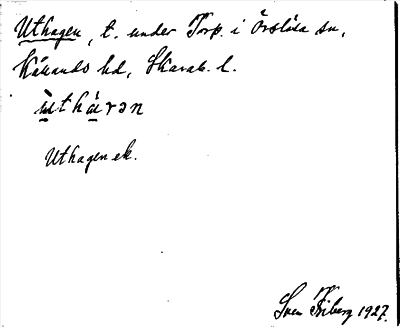 Uthagen, t. under Torp. i Örslösa sn,
Kållands hd, Skarab. l.
ùthàɣən
Uthagen ek.
Sven Friberg 1927.